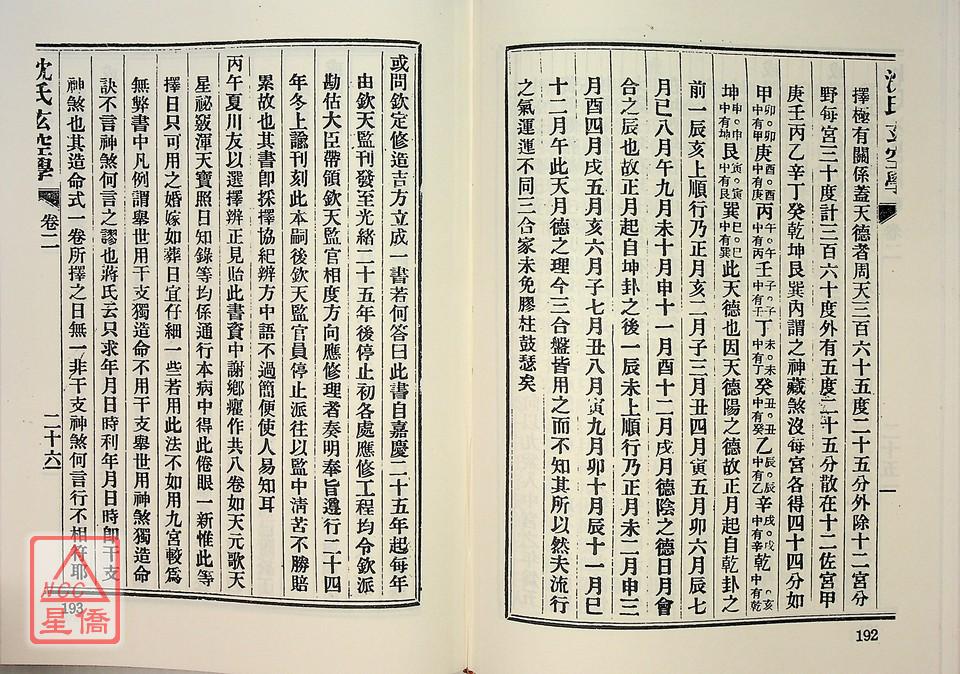 沈氏玄空學
擇極有關係蓋天德者周天三百六十五度二十五分外除十二宮分
野每宮三十度計三百六十度外有五度二十五分散在十二佐宮甲
庚壬丙乙辛丁癸乾坤艮巽內謂之神藏煞沒每宮各得四十四分如
甲卯。卯中有甲庚酉。酉中有庚丙午。午中有丙壬子。子中有壬丁未。未中有丁癸丑。丑中有癸乙辰。辰中有乙辛戌。戌中有辛乾亥。亥中有乾
坤申。申中有坤艮寅。寅中有艮巽巳。巳中有巽此天德也因天德陽之德故正月起自乾卦之
前一辰亥上順行乃正月亥二月子三月丑四月寅五月卯六月辰七
月巳八月午九月未十月申十一月酉十二月戌月德陰之德日月會
合之辰也故正月起自坤卦之後一辰未上順行乃正月未二月申三
月酉四月戌五月亥六月子七月丑八月寅九月卯十月辰十一月巳
十二月午此天月德之理今三合盤皆用之而不知其所以然夫流行
之氣運運不同三合家未免膠柱鼓瑟矣
192
或問欽定修造吉方立成一書若何答曰此書自嘉慶二十五年起每年
由欽天監刊發至光緒二十五年後停止初各處應修工程均令欽派
勘估大臣帶領欽天監官相度方向應修理者奏明奉旨遵行二十四
年冬上諭刊刻此本嗣後欽天監官員停止派往以監中清苦不勝賠
累故也其書卽採擇協紀辨方中語不過簡便使人易知耳
丙午夏川友以選擇辨正見貽此書資中謝鄉癯作共八卷如天元歌天
星祕竅渾天寶照日知錄等均係通行本病中得此倦眼一新惟此等
擇日只可用之婚嫁如葬日宜仔細一些若用此法不如用九宮較爲
無弊書中凡例謂舉世用干支獨造命不用干支舉世用神煞獨造命
訣不言神煞何言之謬也蔣氏云只求年月日時利年月日時卽干支
神煞也其造命式一卷所擇之日無一非干支神煞何言行不相符耶
沈氏玄空學
卷二
二十六
193
NCC
星僑